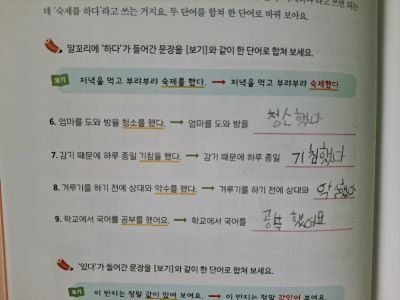 데 '숙제를 하다'라고 쓰는 거지요. 두 단어를 합쳐 한 단어로 바꿔 보아요.
말꼬리에 '하다'가 들어간 문장을 [보기]와 같이 한 단어로 합쳐 보세요.
보기 저녁을 먹고 부랴부랴 숙제를 했다. → 저녁을 먹고 부랴부랴 숙제했다.
6. 엄마를 도와 방을 청소를 했다. → 엄마를 도와 방을 청소했다
7. 감기 때문에 하루 종일 기침을 했다. → 감기 때문에 하루 종일 기침했다
8. 겨루기를 하기 전에 상대와 악수를 했다. → 겨루기를 하기 전에 상대와 악수했다
9. 학교에서 국어를 공부를 했어요. → 학교에서 국어를 공부했어요
'있다'가 들어간 문장을 [보기]와 같이 한 단어로 합쳐 보세요.
보기 이 반지는 정말 값이 있어 보여요. → 이 반지는 정말 값있어 보여요.